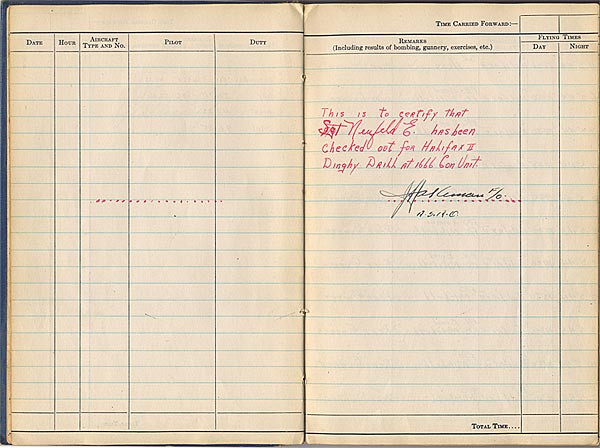 Time Carried Forward:—
Date Hour Aircraft Type and No. Pilot Duty
Remarks
(Including results of bombing, gunnery, exercises, etc.)
Flying Times
Day Night
This is to certify that
Sgt Neufeld E. has been
checked out for Halifax II
Dinghy Drill at 1666 Con Unit.
F/O.
Total Time....